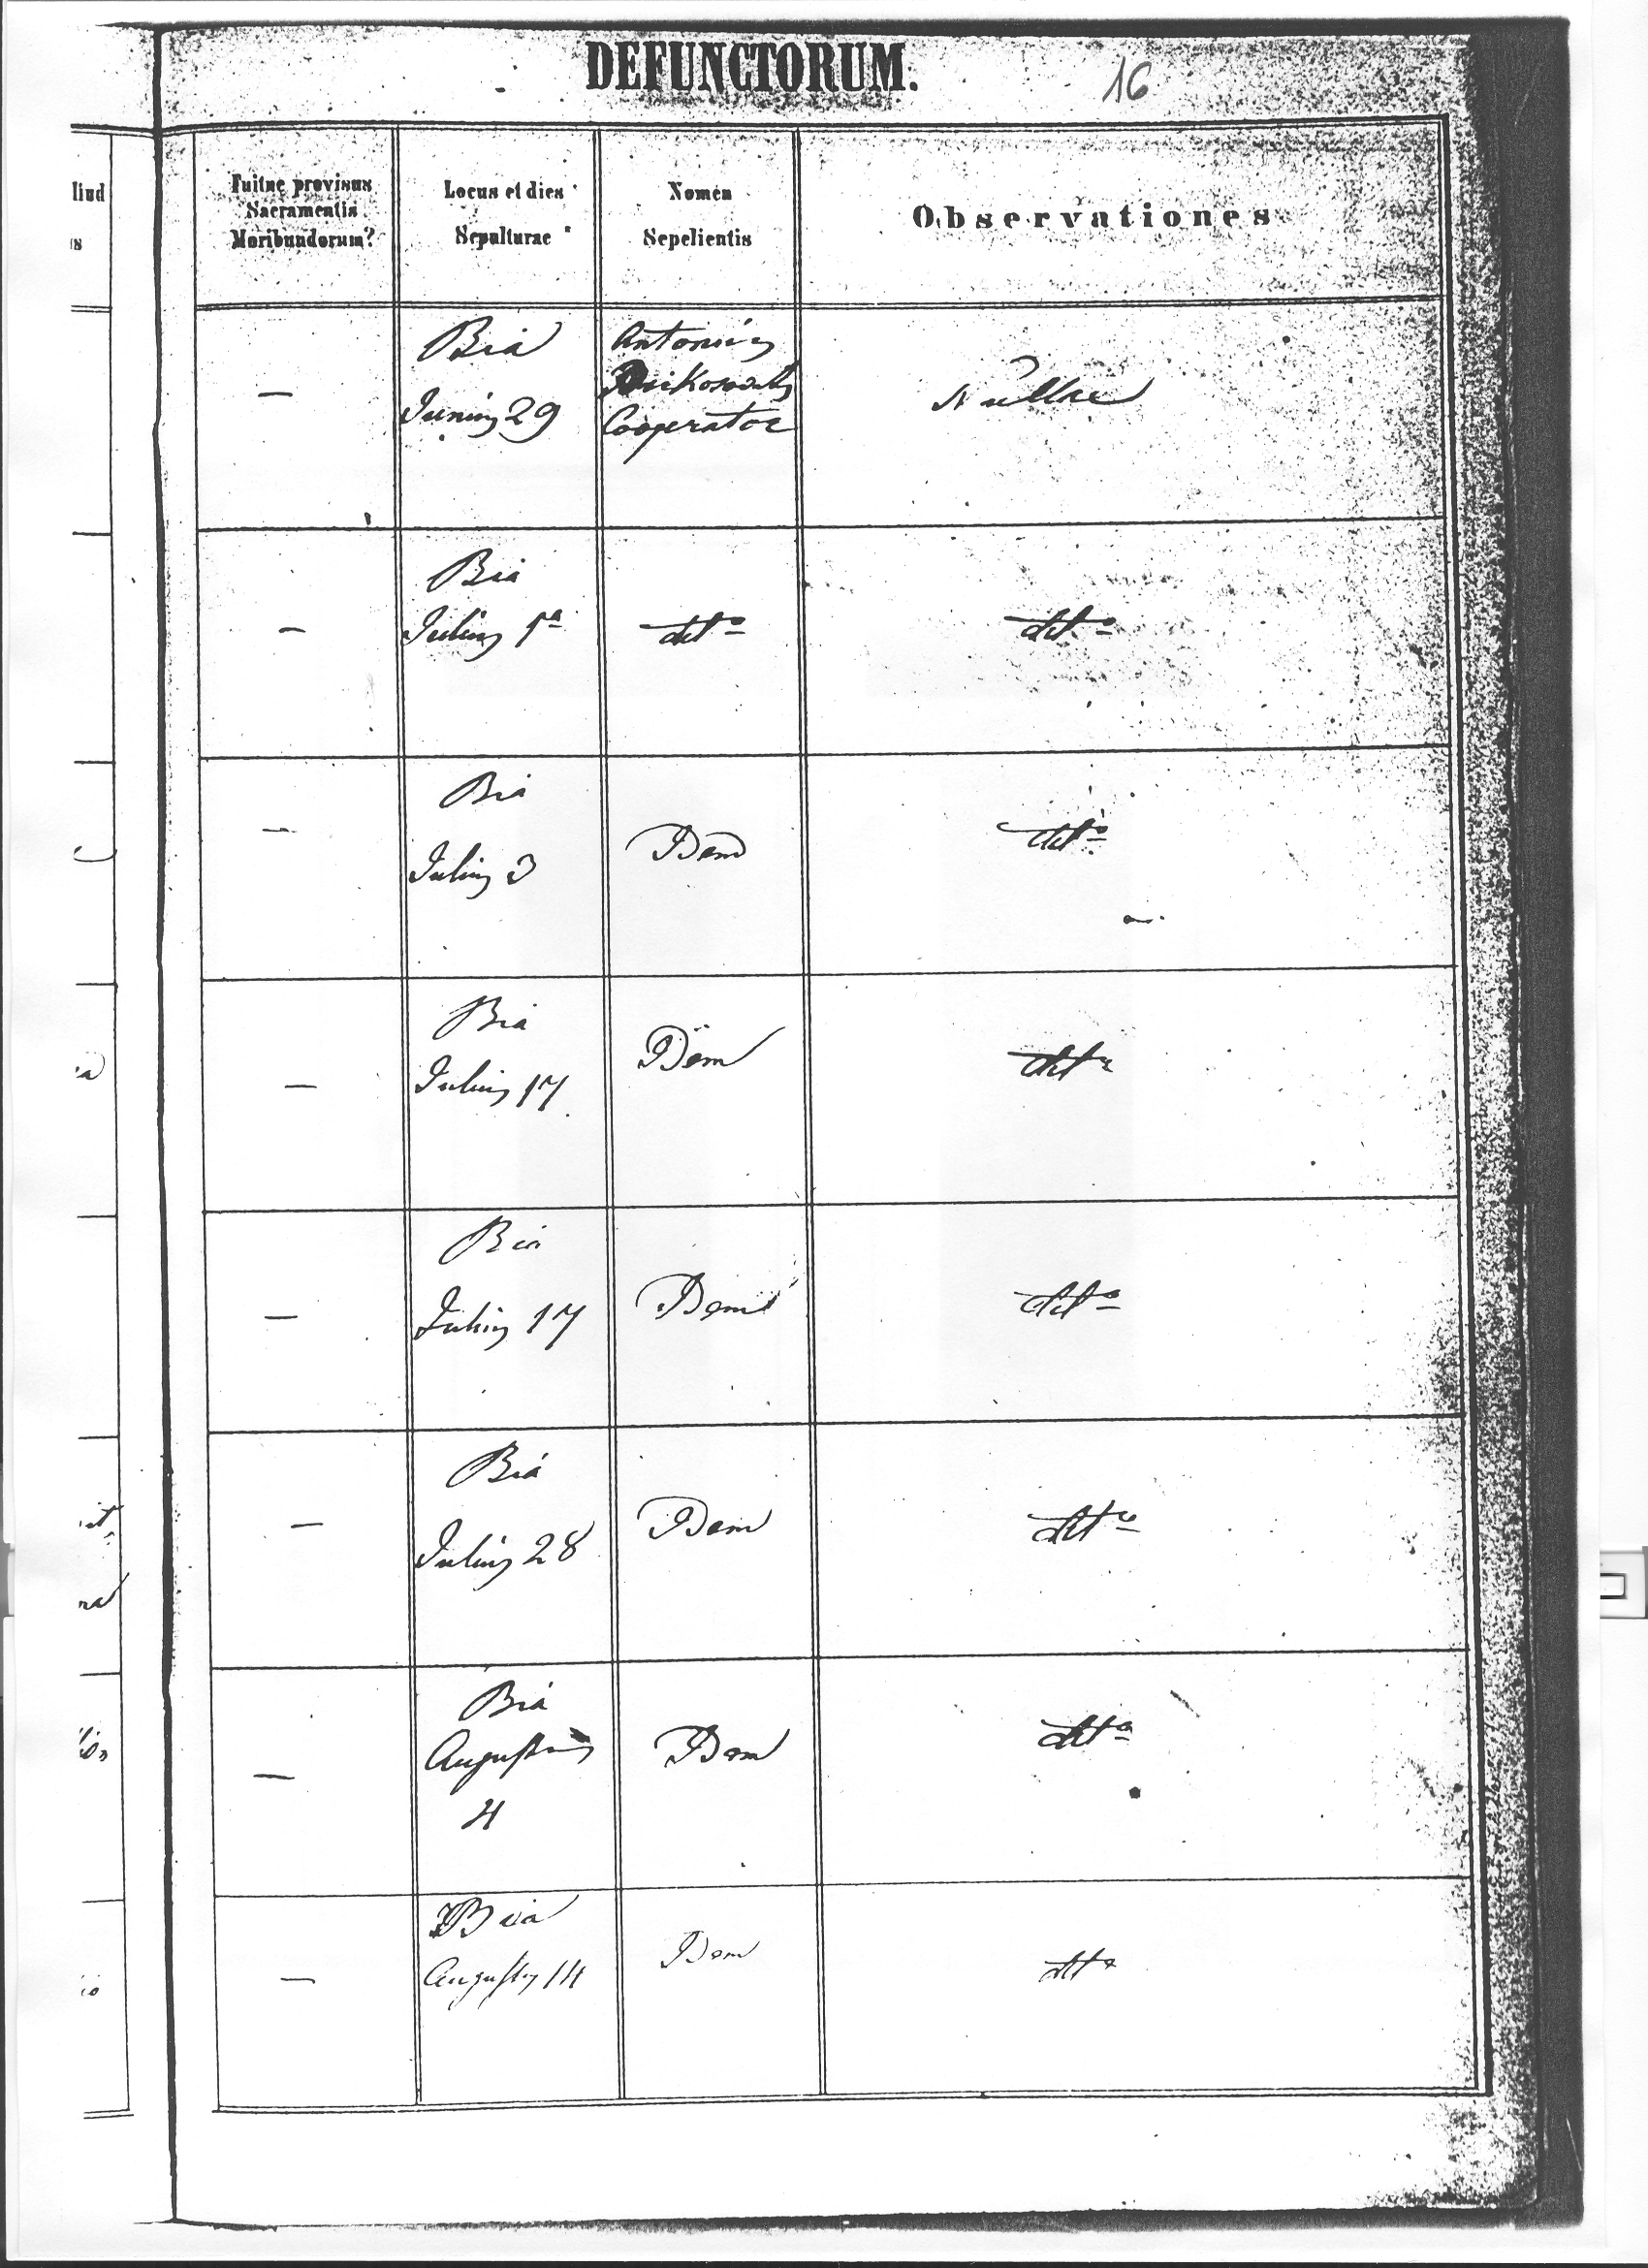 DEFUNCTORUM.
16
liud
s
Fuitne provisus
Sacramentis
Moribundorum?
Locus et dies
Sepulturae
Nomen
Sepelientis
Observationes
—
Bia
Junius 29
Antonius
Cooperator
Nullae
—
Bia
Julius 1ª
dtto
dtto
—
Bia
Julius 3
Idem
dtto
—
Bia
Julius 17
Idem
dtto
—
Bia
Julius 17
Idem
dtto
—
Bia
Julius 28
Idem
dtto
—
Bia
Augustus
4
Idem
dtto
—
Bia
Augustus 14
Idem
dtto